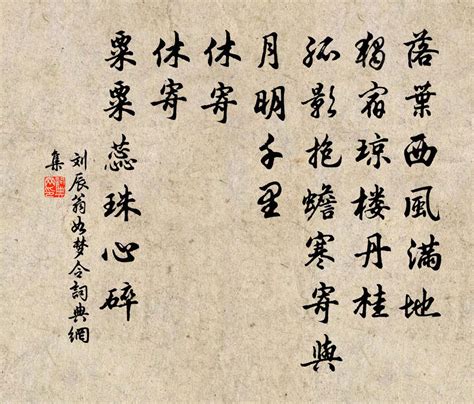 落葉西風滿地
獨宿琼楼丹桂
孤影抱蟾寒寄與
月明千里
休寄
休寄
粟粟蕊珠心碎
刘辰翁如梦令詞典網
集